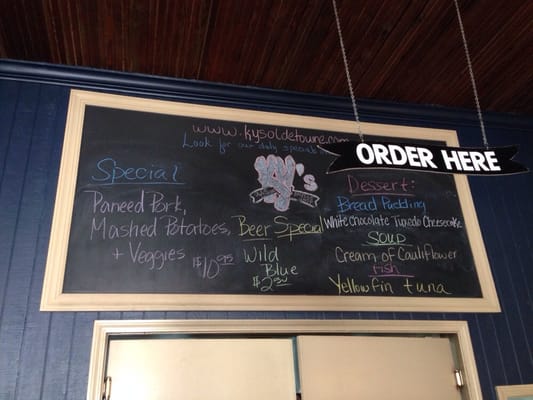 www.kysoldetowne.
Look for our daily specials
ORDER HERE
KY's
Special
Paneed Pork,
Mashed Potatoes,
+ Veggies $10.95
Beer Special
Wild
Blue
Dessert:
Bread Pudding
White Chocolate Tuxedo Cheesecake
SOUP
Cream of Cauliflower
Fish
Yellowfin tuna